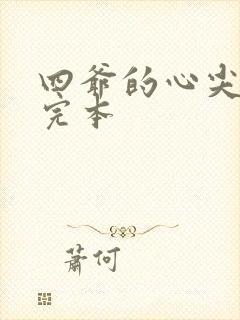 四爷的心尖
完本
萧何